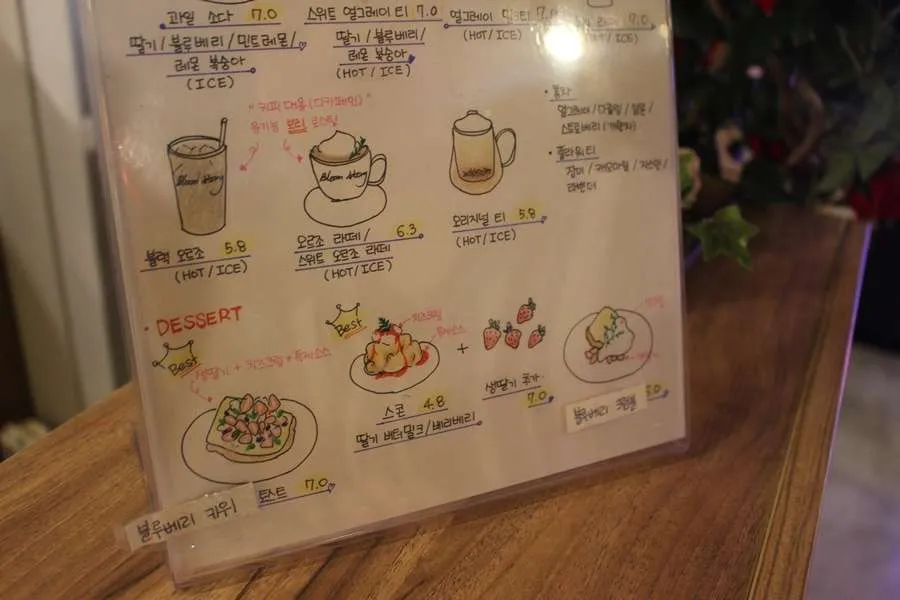 과일 소다 7.0
딸기/블루베리/민트레몬/
레몬 복숭아
(ICE)
스위트 얼그레이 티 7.0
딸기/블루베리/
레몬 복숭아
(HOT/ICE)
얼그레이 밀크티 7.0
(HOT/ICE)
7.0
(HOT/ICE)
"커피 대용(디카페인)
유기농 보리 로스팅
Bloom story
Bloom story
블랙 오르조 5.8
(HOT/ICE)
오르조 라떼/ 6.3
스위트 오르조 라떼
(HOT/ICE)
오리지널 티 5.8
(HOT/ICE)
• 홍차
얼그레이/다즐링/
스트로베리/
• 플라워티
장미/캐모마일/자스민/
라벤더
• DESSERT
Best
생딸기 + 치즈크림 + 특제소스
블루베리 키위
토스트 7.0
Best
치즈크림
특제소스
스콘 4.8
딸기 버터밀크/베리베리
+
생딸기 추가
7.0
블루베리
5.0